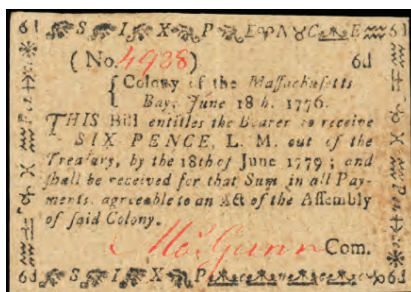 6d S I X P E N C E 6d
(No. 4938) 6d
Colony of the Massachusetts
Bay, June 18th. 1776.
THIS Bill entitles the Bearer to receive
SIX PENCE, L. M. out of the
Treasury, by the 18th of June 1779; and
shall be received for that Sum in all Pay-
ments, agreeable to an Act of the Assembly
of said Colony.
Com.
6d S I X P 6d